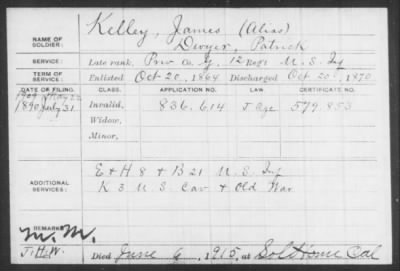 NAME OF SOLDIER: Kelley, James (Alias)
Dwyer, Patrick
SERVICE: Late rank, Priv Co. G, 12 Reg't U. S. Inf
TERM OF SERVICE: Enlisted Oct 20, 1864 Discharged Oct 20, 1870
DATE OF FILING. CLASS. APPLICATION NO. LAW. CERTIFICATE NO.
1890 July 31 Invalid, 836.614 J Age 579 853
Widow,
Minor,
ADDITIONAL SERVICES: E + H 8 + B 21 U. S. Inf
K 3 U. S. Cav + Old War
REMARKS: M. M.
Died June 6, 1915, at Sol Home Cal